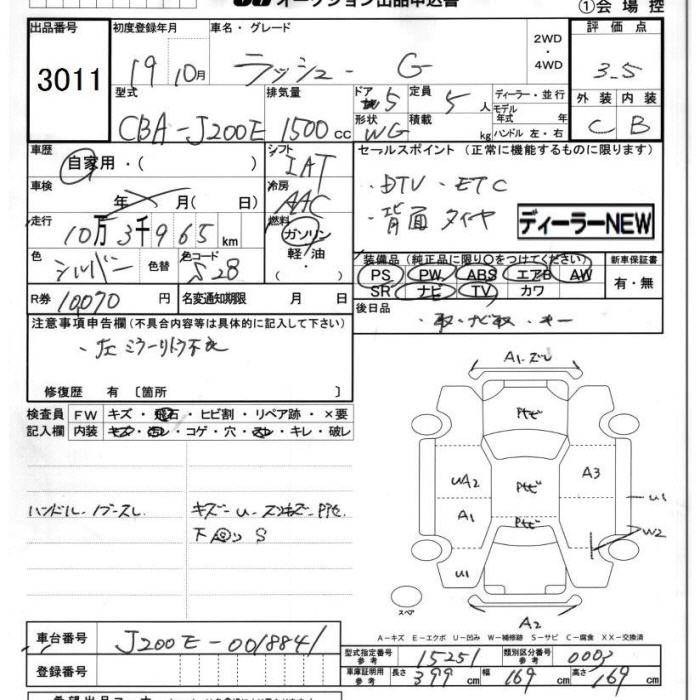 オークション出品申込書
①会場控
出品番号 初度登録年月 車名・グレード 2WD・4WD 評価点
3011 19 10月 ラッシュ- G 3.5
型式 排気量 ドア 5 定員 5 人 ディーラー・並行 外装 内装
CBA-J200E 1500cc 形状 WG 積載 kg モデル年式 年 ハンドル 左・右 C B
車歴 シフト セールスポイント(正常に機能するものに限ります)
自家用・( ) IAT ・DTV ・ETC
車検 年 月( 日) 冷房 AAC ・背面タイヤ ディーラーNEW
走行 10万3千965km 燃料 ガソリン
軽油・
色 シルバー 色替 色コード S28 装備品(純正品に限り○をつけてください) 新車保証書
PS PW ABS エアB AW 有・無
SR ナビ TV カワ
R券 10070 円 名変通知期限 月 日 後日品
注意事項申告欄(不具合内容等は具体的に記入して下さい) ・取・ナビ取・キー
・左ミラーリトラ不良
修復歴 有〔箇所 〕
検査員 FW キズ・飛石・ヒビ割・リペア跡・×要
記入欄 内装 キズ・汚レ・コゲ・穴・スレ・キレ・破レ
ハンドル ノブスレ キズ-U-
下回り S
A1.ズレ
Pセビ
UA2 Pセビ A3
A1 Pセビ U1
W2
U1
スペア
A2
A-キズ E-エクボ U-凹み W-補修跡 S-サビ C-腐食 XX-交換済
車台番号 J200E-0018841
型式指定番号 参考 15251 類別区分番号 参考 0003
登録番号
車庫証明用 参考 長さ 399 cm 幅 169 cm 高さ 169 cm